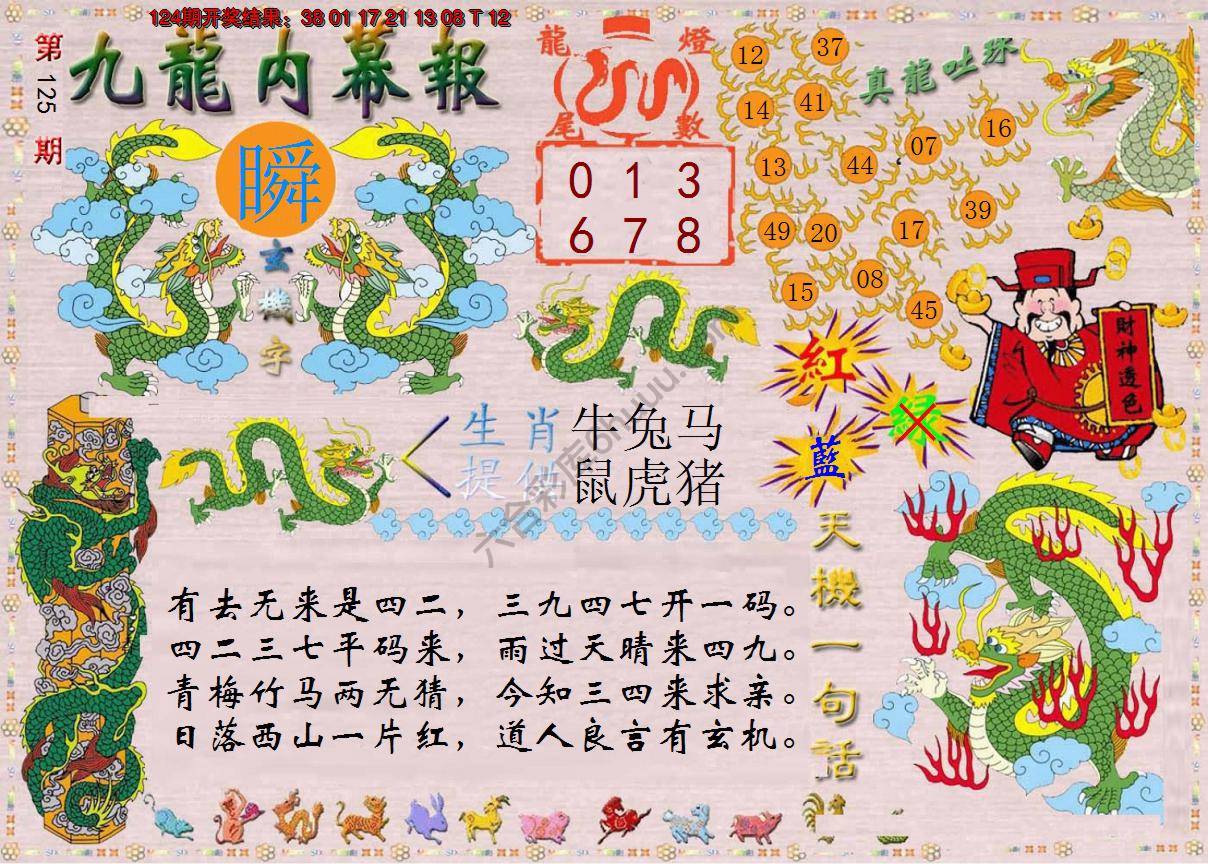 124期开奖结果：38 01 17 21 13 08 T 12
第125期
九龍内幕報
瞬
玄機字
龍燈
尾數
0 1 3
6 7 8
真龍吐珠
12
37
14
41
13
44
07
16
49
20
17
39
15
08
45
財神透色
紅
綠
藍
生肖
提供
牛兔马
鼠虎猪
六合彩库
天機一句话
有去无来是四二，三九四七开一码。
四二三七平码来，雨过天晴来四九。
青梅竹马两无猜，今知三四来求亲。
日落西山一片红，道人良言有玄机。